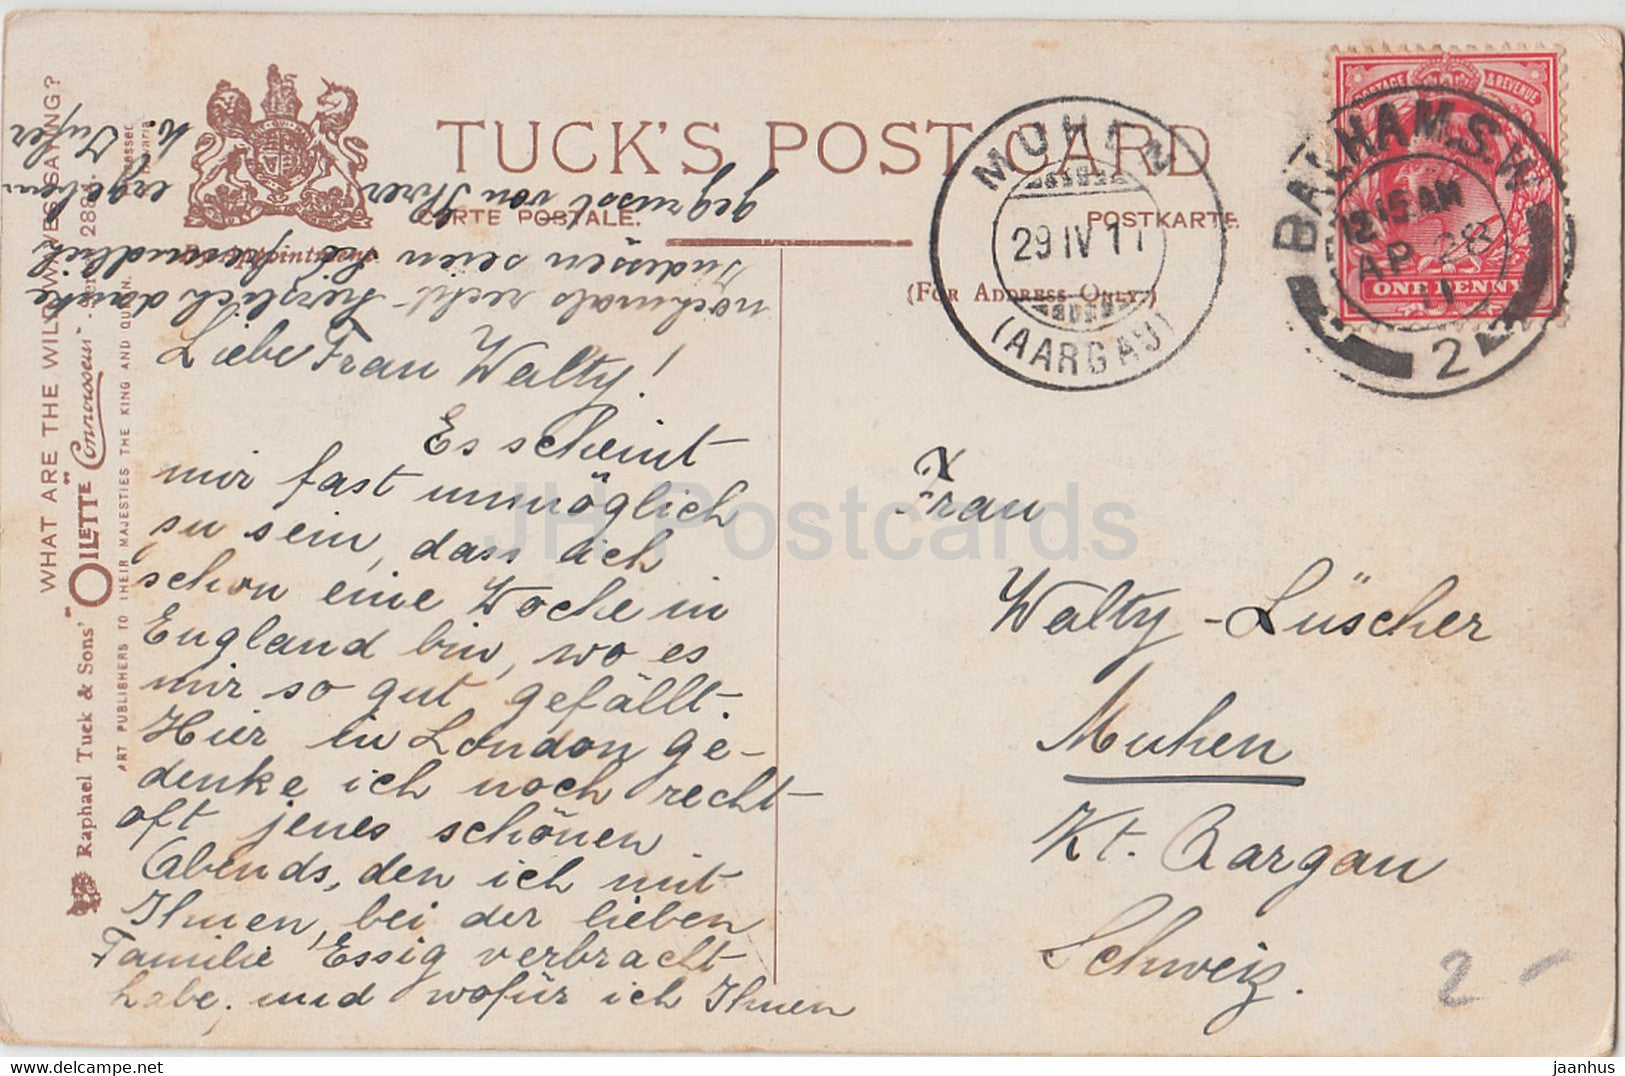 TUCK'S POST CARD
CARTE POSTALE.
POSTKARTE
(FOR ADDRESS ONLY.)
By Appointment.
WHAT ARE THE WILD WAVES SAYING?
Raphael Tuck & Sons' "OILETTE" Connoisseur"
ART PUBLISHERS TO THEIR MAJESTIES THE KING AND QUEEN.
MUHEN
29 IV 11
(AARGAU)
BALHAM. S.W.
12 15 AM
AP 28
11
2
POSTAGE & REVENUE
ONE PENNY
Liebe Frau Walty!
Es scheint
mir fast unmöglich
zu sein, dass ich
schon eine Woche in
England bin, wo es
mir so gut gefällt.
Hier in London ge-
denke ich noch recht
oft jenes schönen
Abends, den ich mit
Ihnen, bei der lieben
Familie Essig verbracht
habe, und wofür ich Ihnen
nochmals recht herzlich danke
Indessen seien Sie freundlich
gegrüsst von Ihrer ergeben.
Frau
Walty-Lüscher
Muhen
Kt. Aargau
Schweiz.
2
JH Postcards
justcards.com
jaanhus